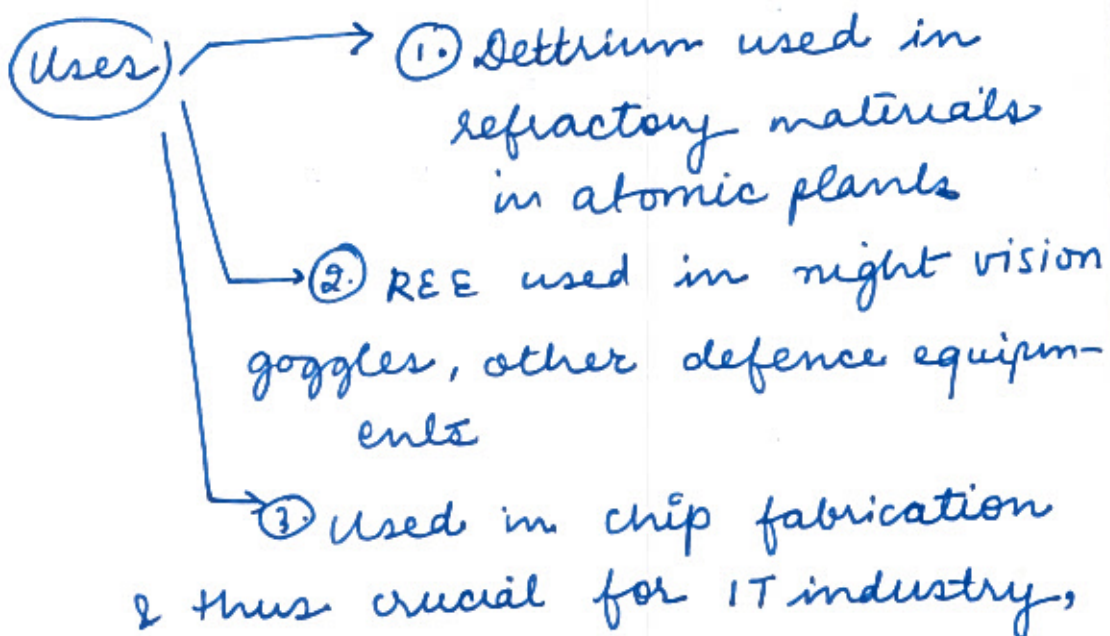 Uses → ①. Dettrium used in
refractory materials
in atomic plants
→ ②. REE used in night vision
goggles, other defence equipm-
ents
→ ③. Used in chip fabrication
& thus crucial for IT industry,